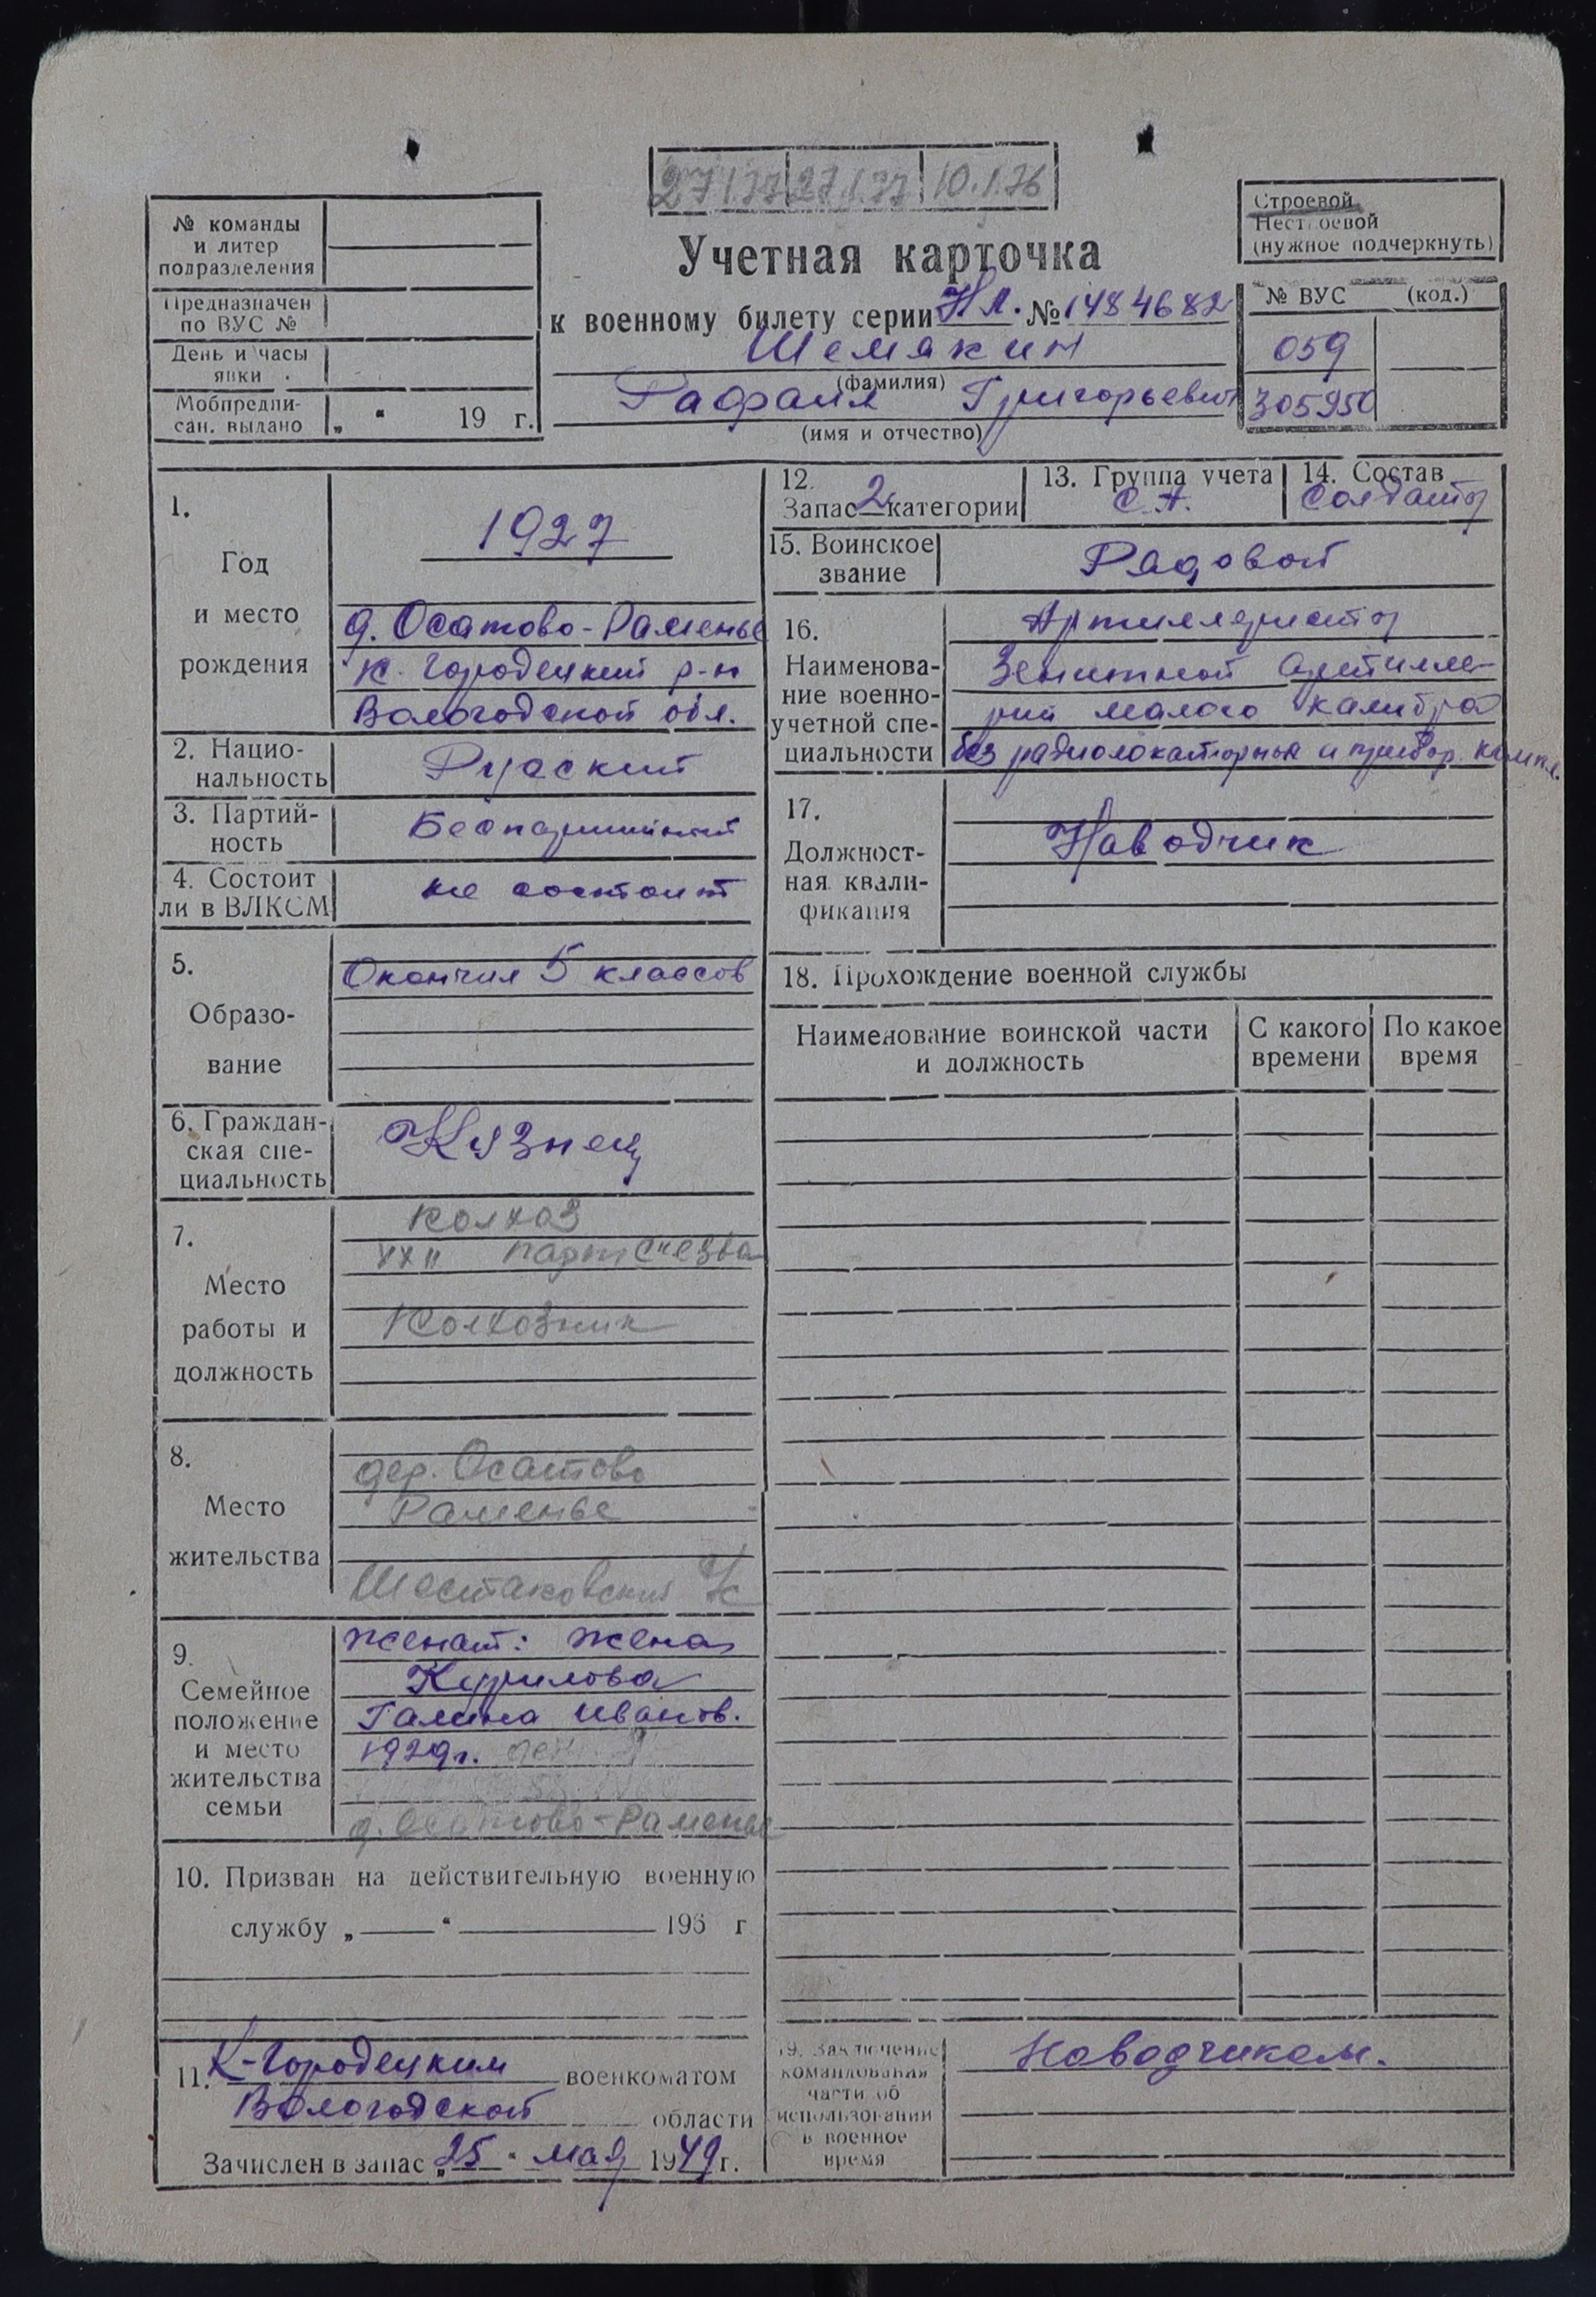 27.1.77 27.1.77 10.1.76
№ команды
и литер
подразделения
Предназначен
по ВУС №
День и часы
явки
Мобпредпи-
сан. выдано „ “ 19 г.
Учетная карточка
к военному билету серии НЛ. № 1484682
Шемякин
(фамилия)
Рафаил Григорьевич
(имя и отчество)
Строевой
Нестроевой
(нужное подчеркнуть)
№ ВУС (код.)
059
305950
1.
Год
и место
рождения
1927
д. Осатово-Раменье
К. Городецкий р-н
Вологодской обл.
2. Нацио-
нальность
Русский
3. Партий-
ность
Беспартийный
4. Состоит
ли в ВЛКСМ
не состоит
5.
Образо-
вание
Окончил 5 классов
6. Граждан-
ская спе-
циальность
Кузнец
7.
Место
работы и
должность
Колхоз
XXII партсъезда
Колхозник
8.
Место
жительства
дер. Осатово
Раменье
Шестаковский с/с
9.
Семейное
положение
и место
жительства
семьи
Женат: жена
Курилова
Галина Иванов.
1929г.
д. Осатово-Раменье
10. Призван на действительную военную
службу „ “ 196 г
11. К-Городецким военкоматом
Вологодской области
Зачислен в запас „25“ мая 1949 г.
12.
Запас 2 категории
13. Группа учета
С.А.
14. Состав
Солдаты
15. Воинское
звание
Рядовой
16.
Наименова-
ние военно-
учетной спе-
циальности
Артиллеристы
Зенитной артилле-
рии малого калибра
без радиолокаторных и прибор. компл.
17.
Должност-
ная квали-
фикация
Наводчик
18. Прохождение военной службы
Наименование воинской части
и должность
С какого
времени
По какое
время
19. Заключение
командования
части об
использовании
в военное
время
Наводчиком.